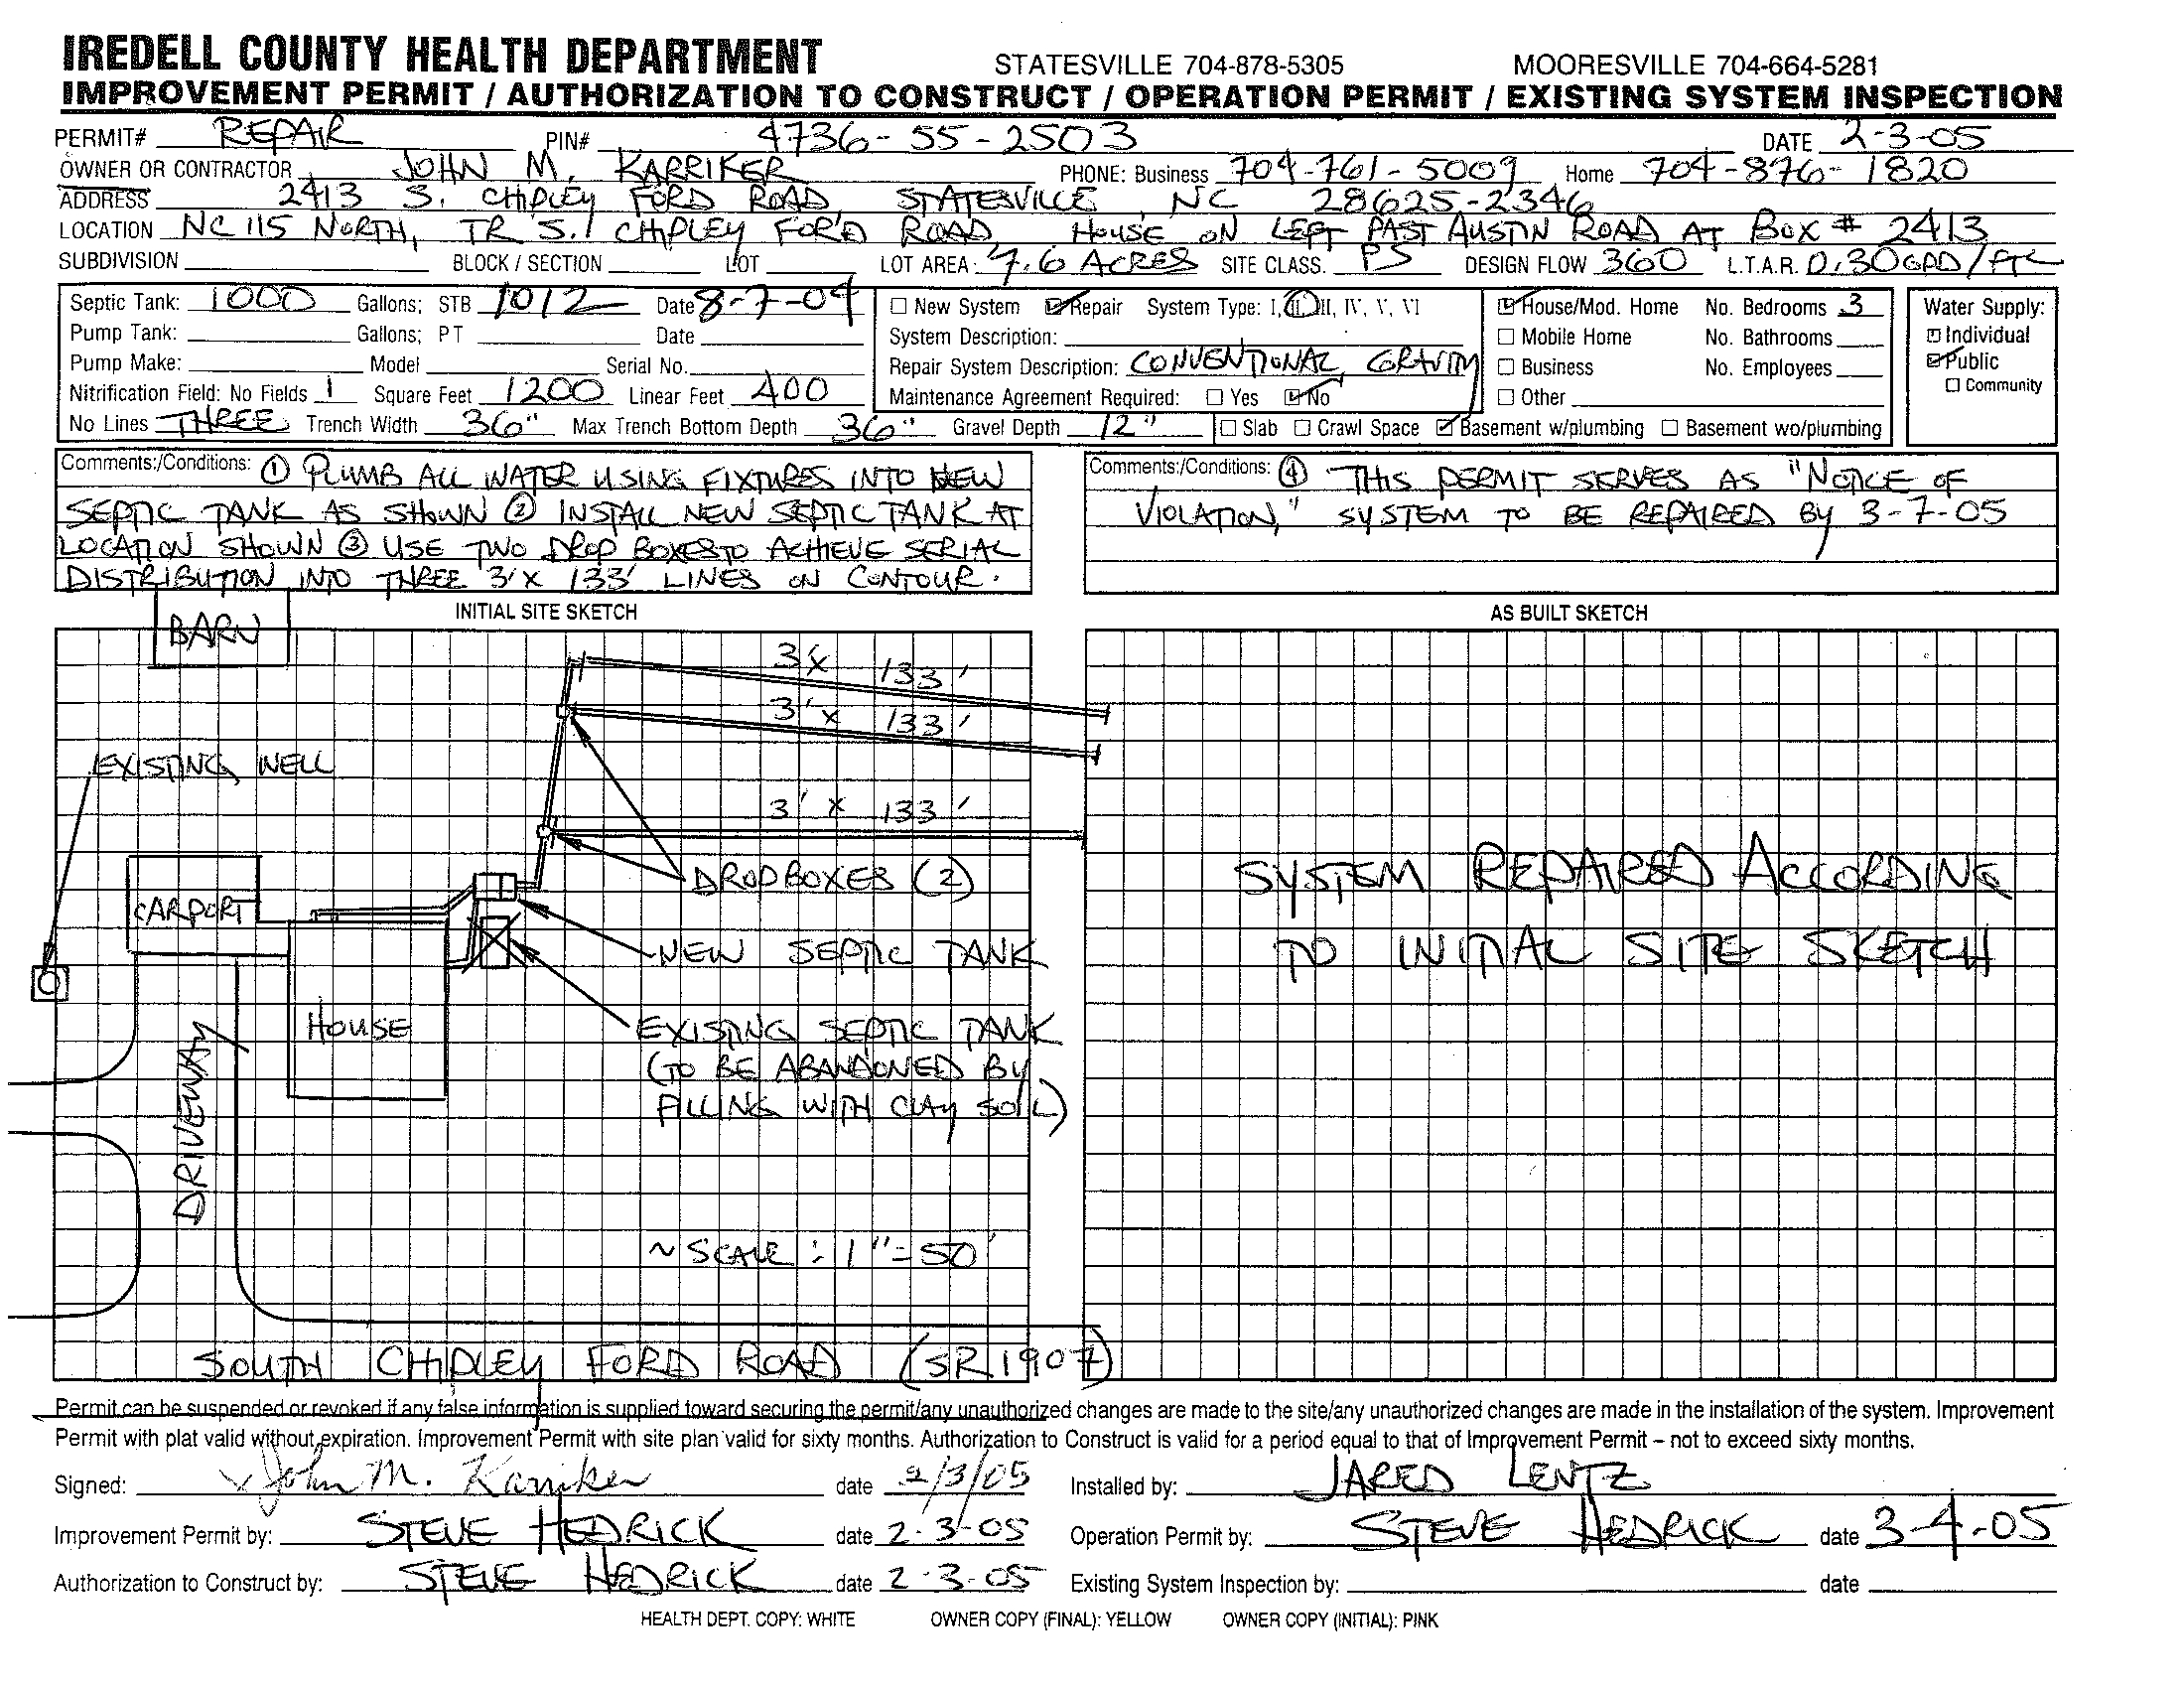 IREDELL COUNTY HEALTH DEPARTMENT STATESVILLE 704-878-5305 MOORESVILLE 704-664-5281
IMPROVEMENT PERMIT / AUTHORIZATION TO CONSTRUCT / OPERATION PERMIT / EXISTING SYSTEM INSPECTION
PERMIT# REPAIR PIN# 4736-55-2503 DATE 2-3-05
OWNER OR CONTRACTOR JOHN M. KARRIKER PHONE: Business 704-761-5009 Home 704-876-1820
ADDRESS 2413 S. CHIPLEY FORD ROAD, STATESVILLE, NC 28625-2346
LOCATION NC 115 NORTH, TR S. CHIPLEY FORD ROAD, HOUSE ON LEFT PAST AUSTIN ROAD AT BOX # 2413
SUBDIVISION BLOCK / SECTION LOT LOT AREA: 7.6 ACRES SITE CLASS. PS DESIGN FLOW 360 L.T.A.R. 0.30 GPD/FT2
Septic Tank: 1000 Gallons; STB 1012 Date 8-7-04 New System Repair System Type: I, II, III, IV, V, VI House/Mod. Home No. Bedrooms 3 Water Supply:
Pump Tank: Gallons; PT Date System Description: Mobile Home No. Bathrooms Individual
Pump Make: Model Serial No. Repair System Description: CONVENTIONAL GRAVITY Business No. Employees Public
Nitrification Field: No Fields 1 Square Feet 1200 Linear Feet 400 Maintenance Agreement Required: Yes No Other Community
No Lines THREE Trench Width 36" Max Trench Bottom Depth 36" Gravel Depth 12" Slab Crawl Space Basement w/plumbing Basement wo/plumbing
Comments:/Conditions: ① PLUMB ALL WATER USING FIXTURES INTO NEW
SEPTIC TANK AS SHOWN ② INSTALL NEW SEPTIC TANK AT
LOCATION SHOWN ③ USE TWO DROP BOXES TO ACHIEVE SERIAL
DISTRIBUTION INTO THREE 3' X 133' LINES ON CONTOUR.
Comments:/Conditions: ④ THIS PERMIT SERVES AS "NOTICE OF
VIOLATION," SYSTEM TO BE REPAIRED BY 3-7-05
INITIAL SITE SKETCH
BARN
3' x 133'
3' x 133'
EXISTING WELL
3' x 133'
DROP BOXES (2)
CARPORT
NEW SEPTIC TANK
HOUSE
EXISTING SEPTIC TANK
(TO BE ABANDONED BY
FILLING WITH CLAY SOIL)
DRIVEWAY
~ SCALE: 1" = 50'
SOUTH CHIPLEY FORD ROAD (SR 1907)
AS BUILT SKETCH
SYSTEM REPAIRED ACCORDING
TO INITIAL SITE SKETCH
Permit can be suspended or revoked if any false information is supplied toward securing the permit/any unauthorized changes are made to the site/any unauthorized changes are made in the installation of the system. Improvement
Permit with plat valid without expiration. Improvement Permit with site plan valid for sixty months. Authorization to Construct is valid for a period equal to that of Improvement Permit – not to exceed sixty months.
Signed: x John M. Karriker date 2/3/05 Installed by: JARED LENTZ
Improvement Permit by: STEVE HEDRICK date 2-3-05 Operation Permit by: STEVE HEDRICK date 3-4-05
Authorization to Construct by: STEVE HEDRICK date 2-3-05 Existing System Inspection by: date
HEALTH DEPT. COPY: WHITE OWNER COPY (FINAL): YELLOW OWNER COPY (INITIAL): PINK